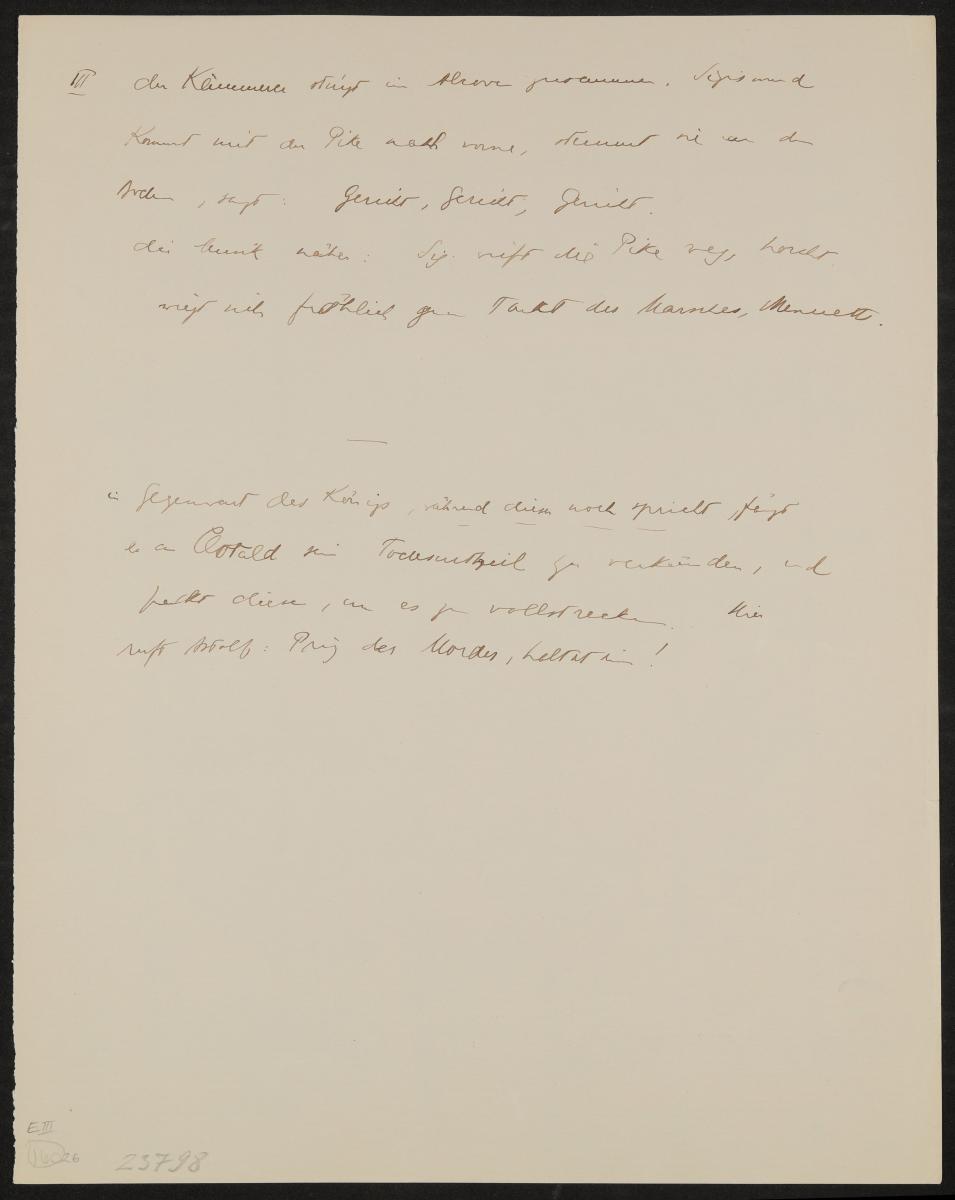 III der Kämmerer steigt im Alcoven zusammen. Sigismund
Kommt mit der Pike nach vorne, stemmt sie an den
Boden, sagt: Gericht, Gericht, Gericht.
die Musik näher: Sig. wirft die Pike weg, horcht
wiegt sich fröhlich zum Takt des Marsches, Menuetts.
in Gegenwart des Königs, während dieser noch spricht,
er an Clotald sein Todesurtheil zu verkünden, und
packt diesen, um es zu vollstrecken. Hier
ruft Astolf: Prinz des Mordes, haltet ein!
E III
160 26
23798